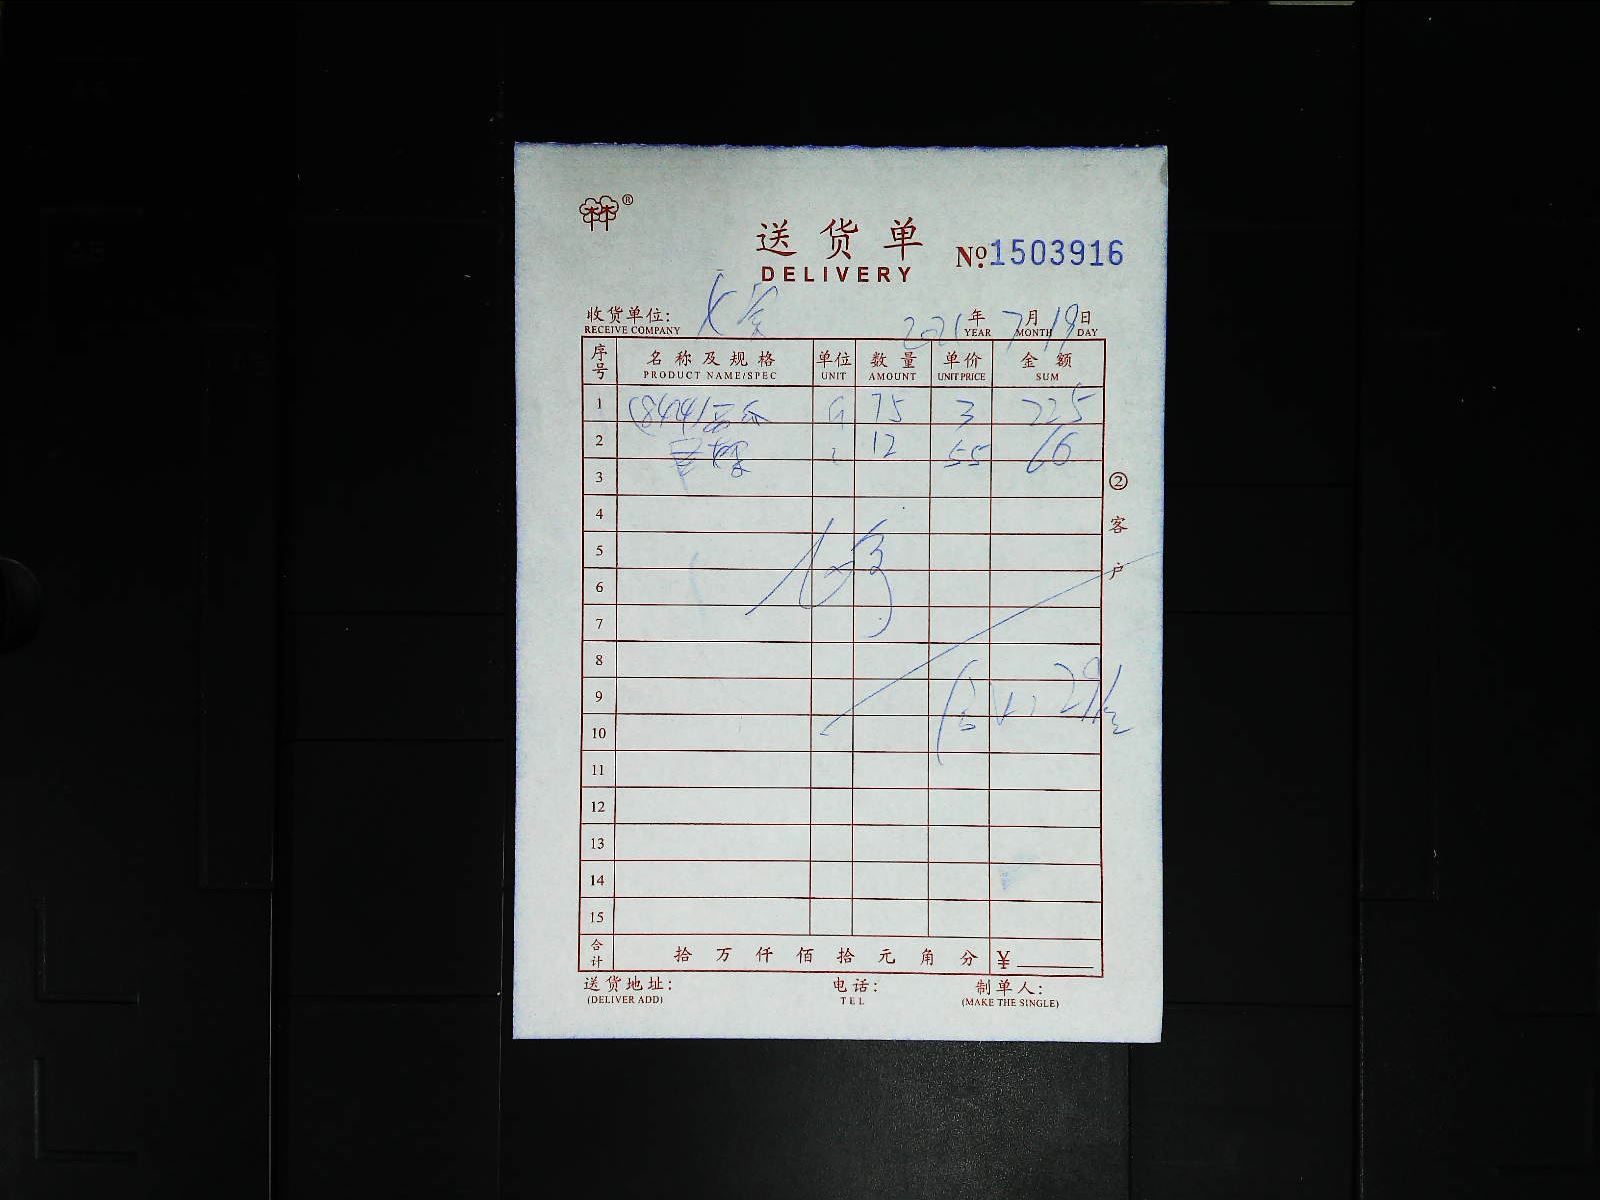 林®
送货单
DELIVERY
№1503916
收货单位:
RECEIVE COMPANY
2021年 7月 19日
YEAR MONTH DAY
序号 名称及规格 单位 数量 单价 金额
PRODUCT NAME/SPEC UNIT AMOUNT UNIT PRICE SUM
1 (8424) 75 3 225
2 12 55 66
3
② 客户
4
5
6
7
8
9
10
11
12
13
14
15
合计 拾 万 仟 佰 拾 元 角 分 ¥
送货地址: 电话: 制单人:
(DELIVER ADD) TEL (MAKE THE SINGLE)